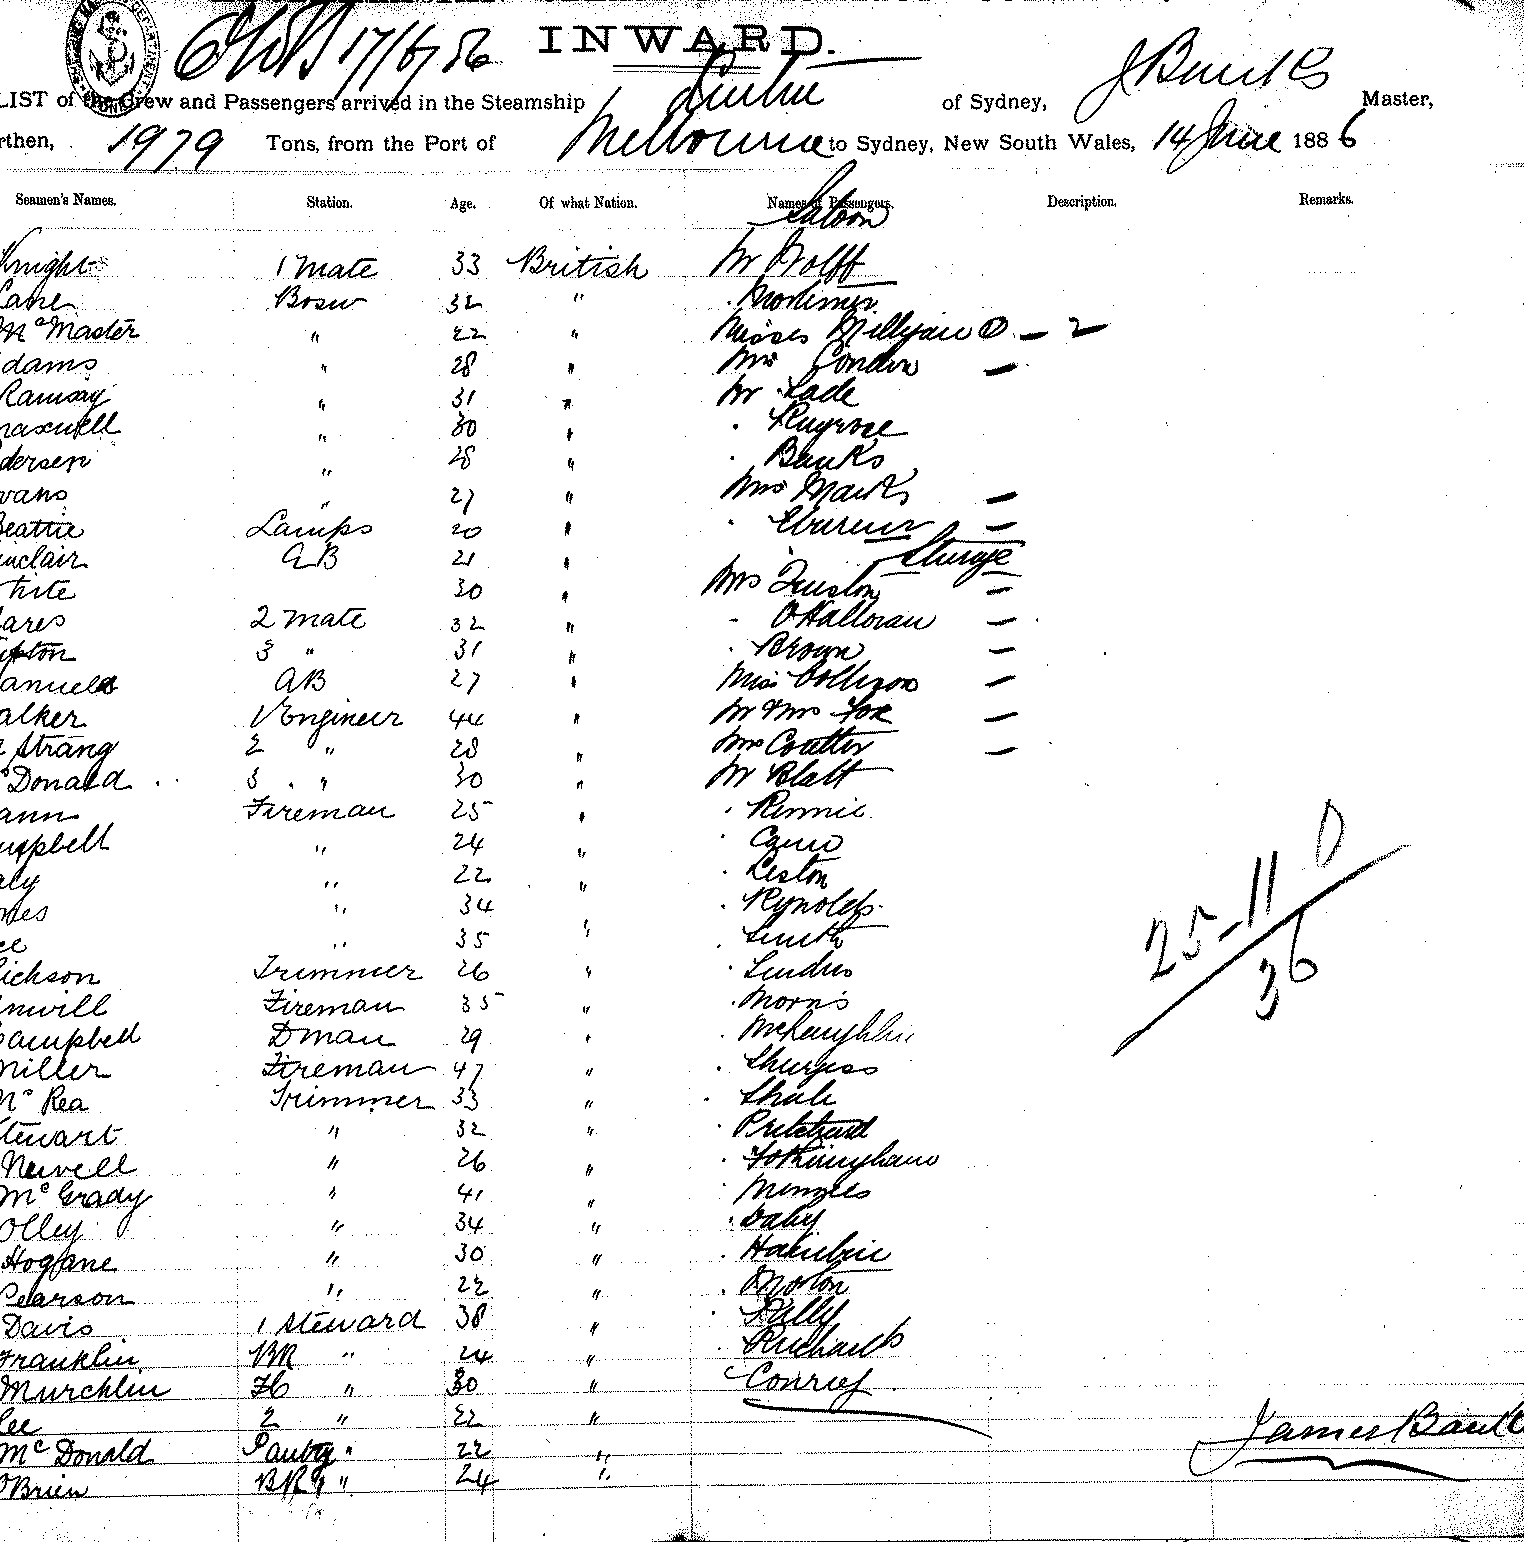 17/6/86
INWARD.
LIST of the Crew and Passengers arrived in the Steamship of Sydney, J Banks Master,
rthen, 1979 Tons, from the Port of Melbourne to Sydney, New South Wales, 14 June 1886
Seamen's Names. Station. Age. Of what Nation. Names of Passengers. Description. Remarks.
Saloon
Knight 1 Mate 33 British Mr Wolff
Lane Bosn 32 " . Mortimer
McMaster " 22 " Misses — 2
dams " 28 " Mrs Condon —
Ramsay " 31 " Mr Lade
maxwell " 30 " .
dersen " 28 " . Banks
vans " 27 " Mrs Marks —
Beattie Lamps 20 " . —
nclair AB 21 " Steerage
hite 30 " Mrs —
ares 2 Mate 32 " . O'Halloran —
pton 3 " 31 " . Brown —
amuels AB 27 " Miss —
alker 1 Engineer 44 " Mr & Mrs Fox —
Strang 2 " 28 " Mrs —
cDonald 3 " 30 " Mr Blatt
ann Fireman 25 " . Rennie
mpbell " 24 " .
aly " 22 " . Leston
mes " 34 " . Reynolds
ee " 35 " . Smith
ickson Trimmer 26 " .
nwill Fireman 35 " . Morris
Campbell Dman 29 " . McLaughlin
Miller Fireman 47 " . Sturgess
McRea Trimmer 33 " .
Stewart " 32 " . Pritchard
Newell " 26 " . Fotheringham
McGrady " 41 " . Menzies
Olley " 34 " . Daly
Hogane " 30 " .
Pearson " 22 " . Morton
Davis 1 Steward 38 " . Lally
Franklin BR " 24 " . Richards
Murchlin " 30 " Conroy
Lee 2 " 22 "
McDonald Pantry " 22 "
O'Brien BR " 24 "
25 - 11 0
36
James Banks